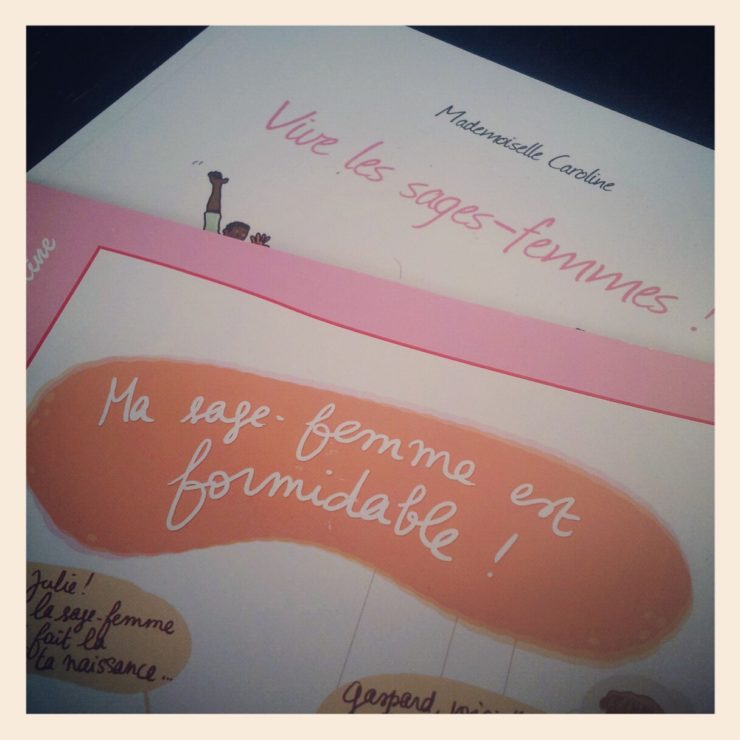 Mademoiselle Caroline
Vive les sages-femmes !
Ma sage-femme est
formidable !
Julie!
la sage-femme
fait la
ta naissance...
Gaspard,